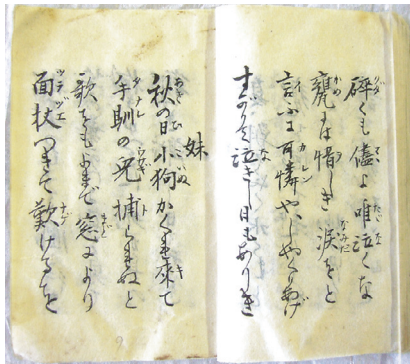 碎くも儘よ唯泣くな
甕は惜しき涙をと
言ふ可憐やしやくりあげ
泣きし日もありき
妹
秋の日小狗かくれ來て
手馴の兎捕られぬと
歌をもよまで窓により
面杖つきて歎けるを